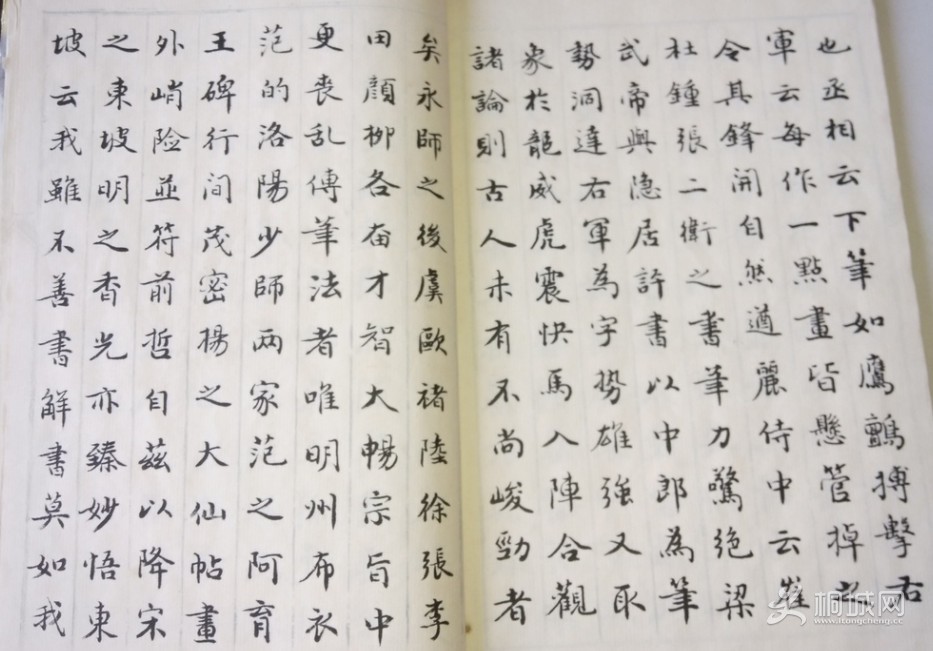 也丞相云下筆如鷹鸇搏擊右
軍云每作一點畫皆懸管掉之
令其鋒開自然遒麗侍中云崔
杜鍾張二衛之書筆力驚絶梁
武帝與隐居評書以中郎為筆
勢洞達右軍為字勢雄強又取
象於龍威虎震快馬入陣合觀
諸論則古人未有不尚峻勁者
矣永師之後虞歐褚陸徐張李
田顏柳各奋才智大暢宗旨中
更丧乱傳筆法者唯明州布衣
范的洛陽少師两家范之阿育
王碑行间茂密楊之大仙帖畫
外峭险並符前哲自兹以降宋
之東坡明之香光亦臻妙悟東
坡云我雖不善書解書莫如我
桐城网
www.itongcheng.cc